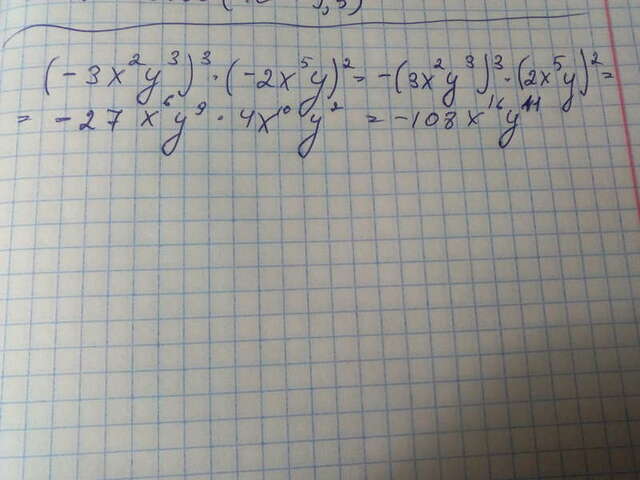 (-3x²y³)³·(-2x⁵y)²=-(3x²y³)³·(2x⁵y)²=
=-27x⁶y⁹·4x¹⁰y²=-108x¹⁶y¹¹